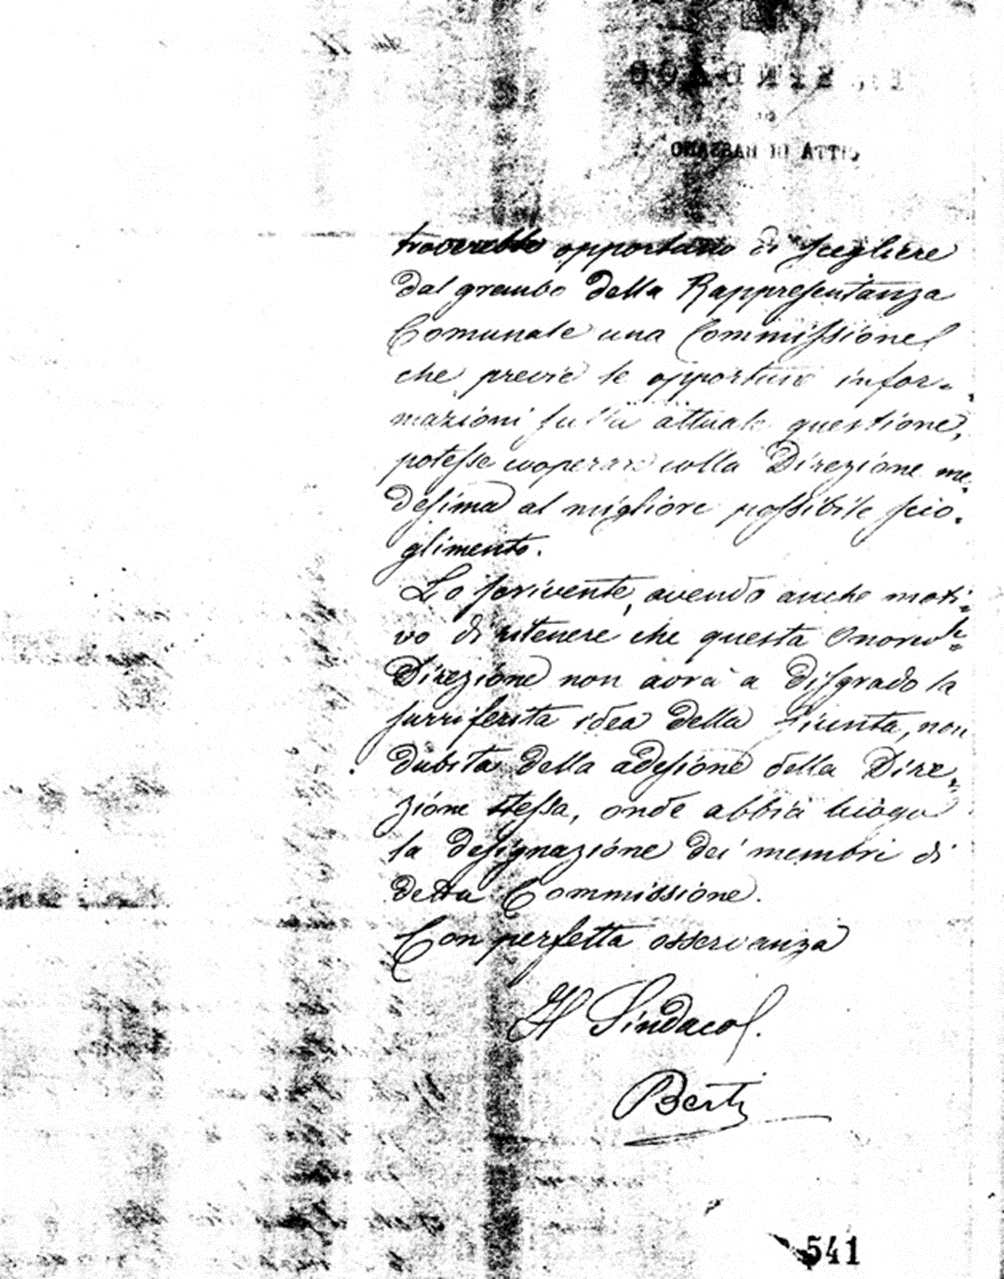 IL SINDACO
CITTÀ DI BASSANO
troverebbe opportuno di scegliere
dal grembo della Rappresentanza
Comunale una Commissione
che previe le opportune infor-
mazioni sulla attuale questione,
potesse cooperare colla Direzione me-
desima al migliore possibile scio-
glimento.
Lo scrivente, avendo anche moti-
vo di ritenere che questa Onorevole
Direzione non avrà a disgrado la
surriferita idea della Giunta, non
dubita della adesione della Dire-
zione stessa, onde abbia luogo
la designazione dei membri di
detta Commissione.
Con perfetta osservanza
Il Sindaco.
Berti
541